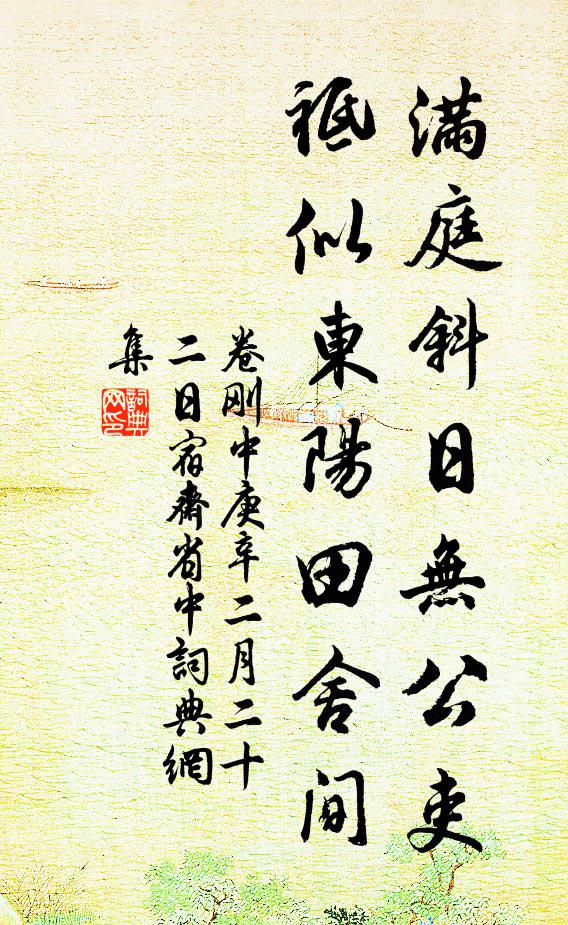 滿庭斜日無公吏
祗似東陽田舍間
卷刚中庚辛二月二十
二日宿齋省中詞典網
集
詞典
网印